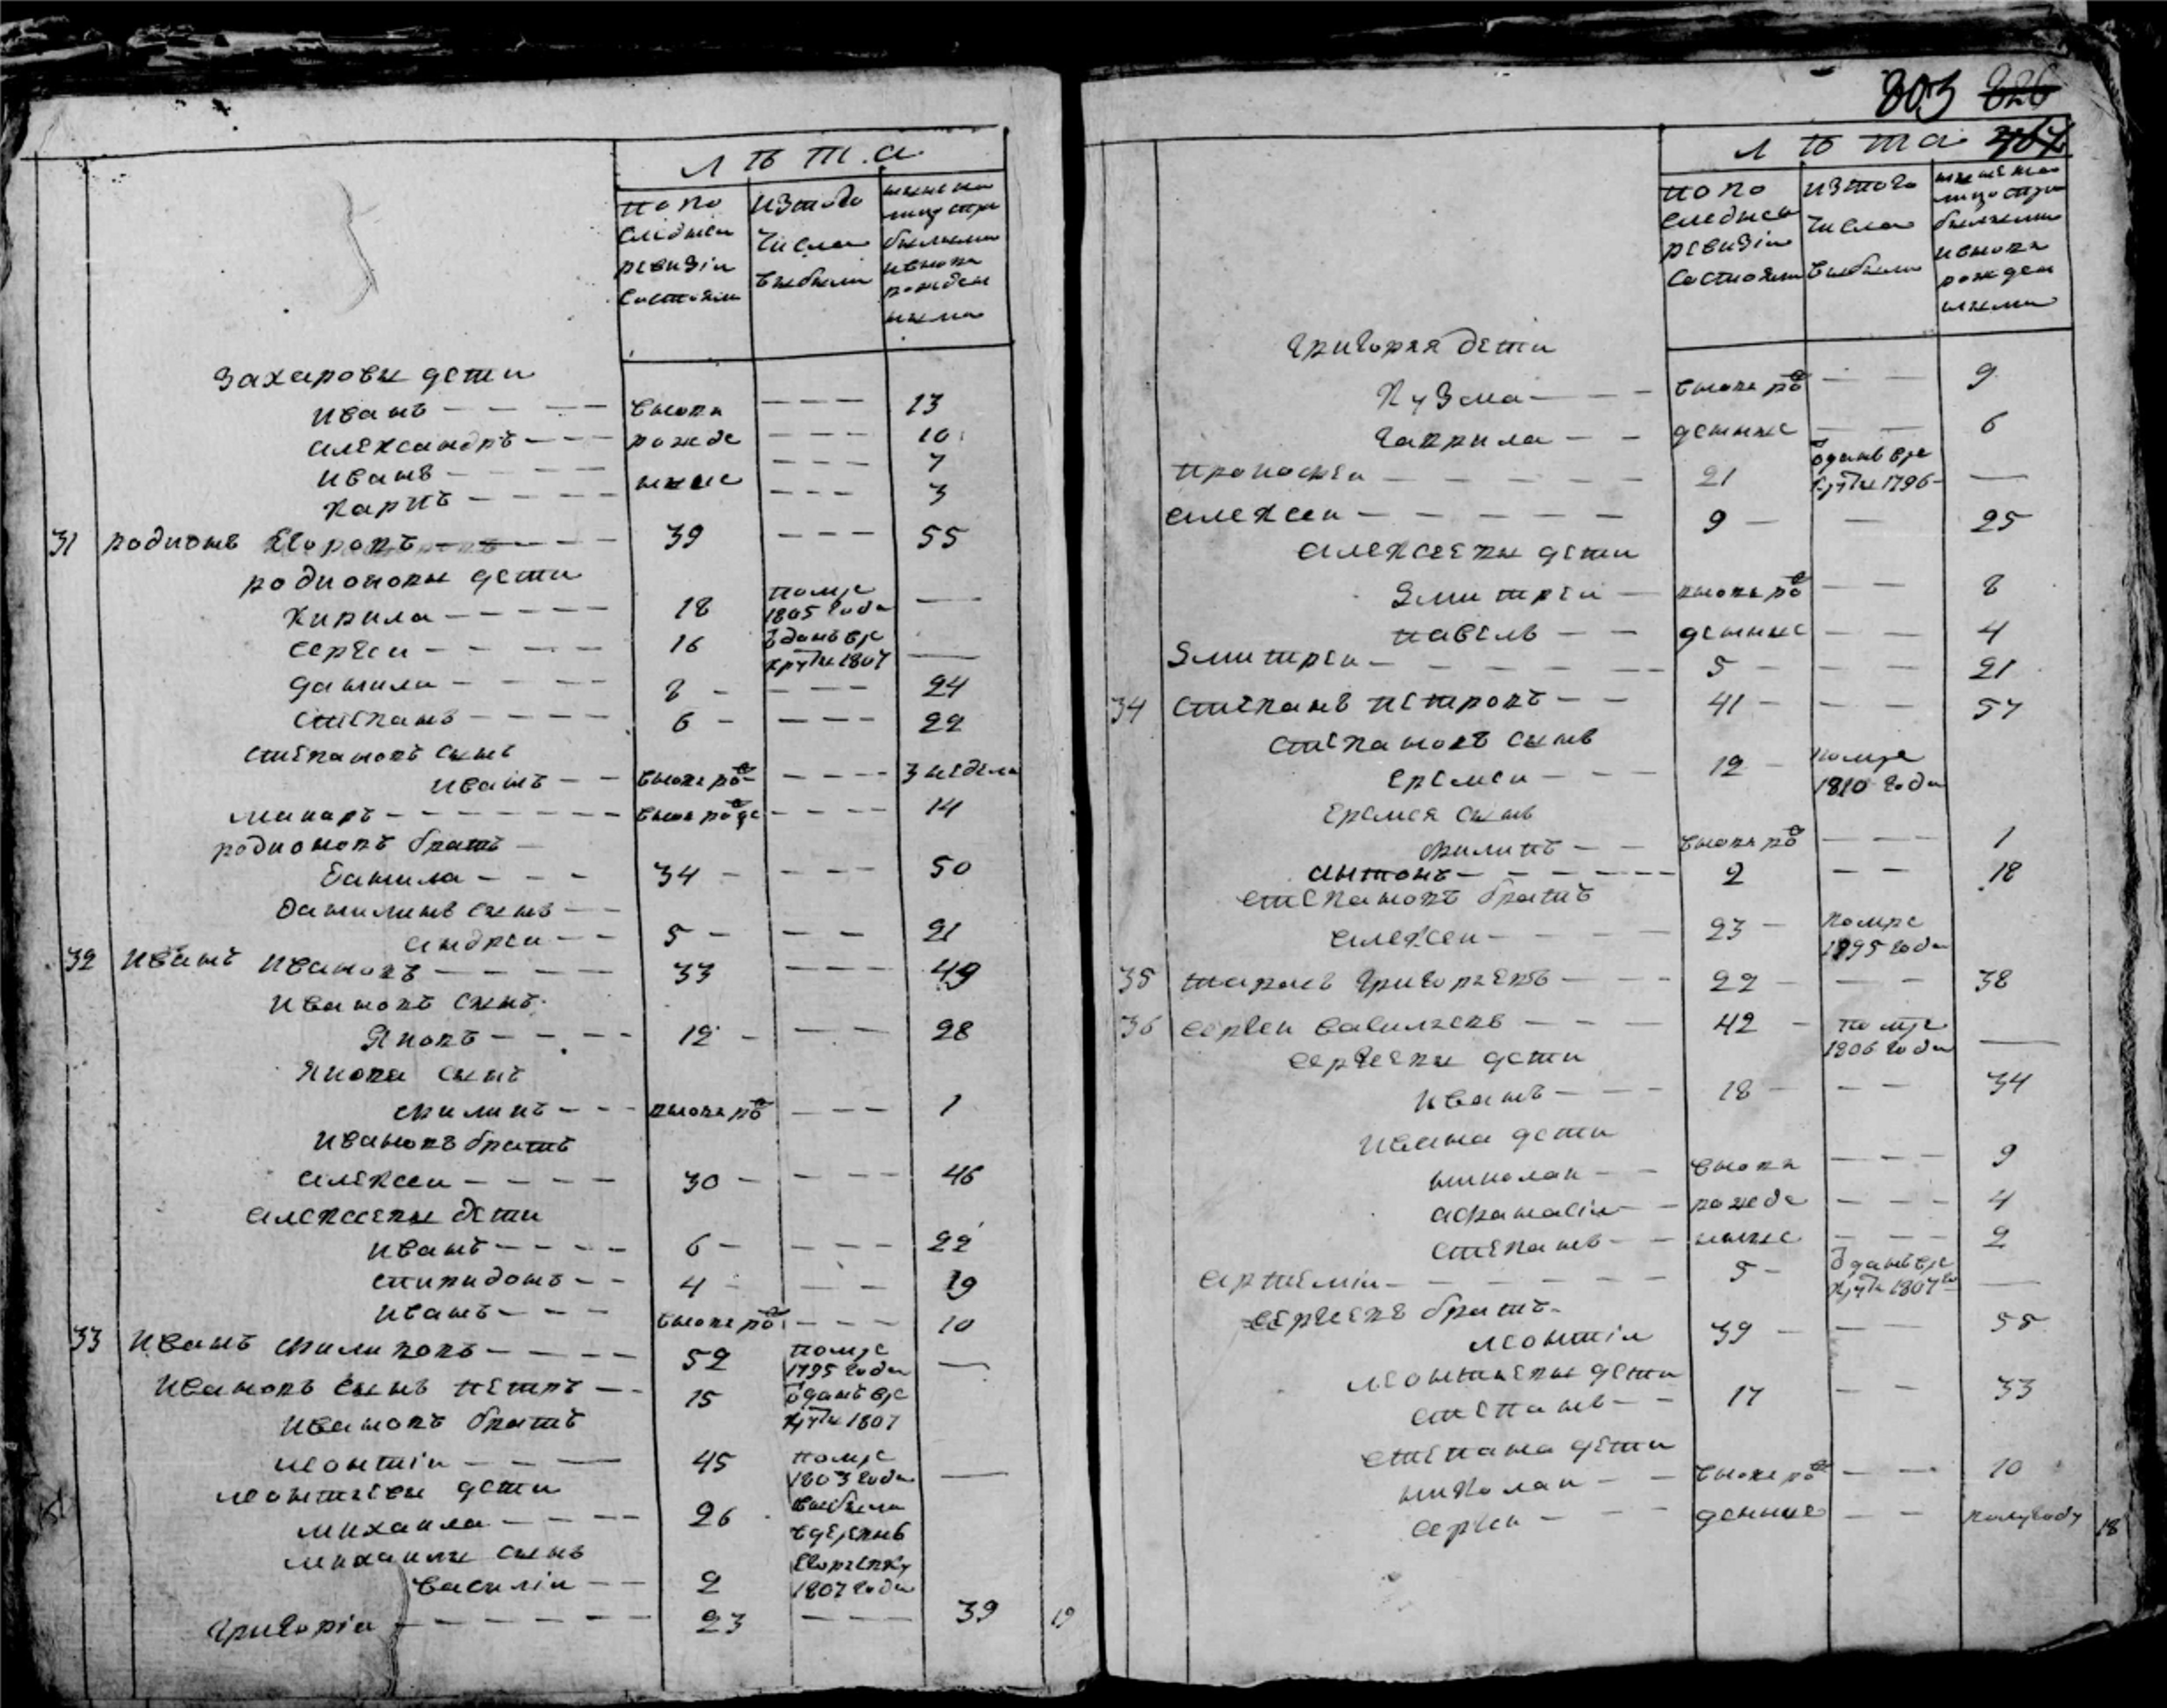 лѣта
по по
следнеи
ревизiи
состояли
изтого
числа
выбыли
ныне на
лицо спри
былыми
и вновь
рожден
ными
Захаровы дети
Иванъ — — — вновь — — — 13
Александръ — — — рожде — — — 10
Иванъ — — — нные — — — 7
Карпъ — — — — — — 3
31 Родионъ Егоровъ — — — 39 — — — 55
Родионовы дети
Кирила — — — 18 помре 1805 года —
Сергеи — — — 16 отданъ вре круты 1807 —
Данила — — — 8 — — — 24
Степанъ — — — 6 — — — 22
Степановъ сынъ
Иванъ — — вновь ро — — — 3 недели
Макаръ — — — вновь рожде — — — 14
Родионовъ братъ —
Данила — — — 34 — — — 50
Данилинъ сынъ — —
Андреи — — 5 — — — 21
32 Иванъ Ивановъ — — — 33 — — — 49
Ивановъ сынъ
Яковъ — — — 12 — — — 28
Якова сынъ
Филипъ — — вновь рож — — — 1
Ивановъ братъ
Алексеи — — — 30 — — — 46
Алексеевы дети
Иванъ — — — 6 — — — 22
Спиридонъ — — 4 — — — 19
Иванъ — — — вновь рож — — — 10
33 Иванъ Филиповъ — — — 52 помре 1795 года —
Ивановъ сынъ Петръ — — 15 отданъ вре круты 1807
Ивановъ братъ
Леонтiи — — — 45 помре 1803 года —
Леонтьевы дети
Михаила — — — 26 выбыли
вдеревню
Михаилы сынъ
Василiи — — 2 1807 года
Григорiи — — — 23 — — — 39
19
803 826
лѣта 367
по по
следнеи
ревизiи
состояли
изтого
числа
выбыли
ныне на
лицо спри
былыми
и вновь
рожден
ными
Григорья дети
Кузма — — — вновь ро — — 9
Гаврила — — денные — — 6
Прокофеи — — — 21 отданъ вре круты 1796 —
Алексеи — — — 9 — — 25
Алексеевы дети
Дмитреи — вновь ро — — 8
Павелъ — — денные — — 4
Дмитреи — — — 5 — — — 21
34 Степанъ Петровъ — — 41 — — — 57
Степановъ сынъ
Еремеи — — — 12 — помре 1810 года
Еремея сынъ
Филипъ — — вновь ро — — — 1
Антонъ — — — 2 — — 18
Степановъ братъ
Алексеи — — — 23 — помре 1795 года
35 Тарасъ Григорьевъ — — — 22 — — — 38
36 Сергеи Васильевъ — — — 42 — помре 1806 года —
Сергеевы дети
Иванъ — — — 18 — — — 34
Ивана дети
Николаи — — вновь — — — 9
Афанасiи — — рожде — — — 4
Степанъ — — нные — — — 2
Артемiи — — — 5 — отданъ вре круты 1807 го —
Сергеевъ братъ —
Леонтiи 39 — — — 55
Леонтьевы дети
Степанъ — — 17 — — 33
Степана дети
Николаи — — вновь ро — — 10
Сергеи — — денные — — полугоду
18